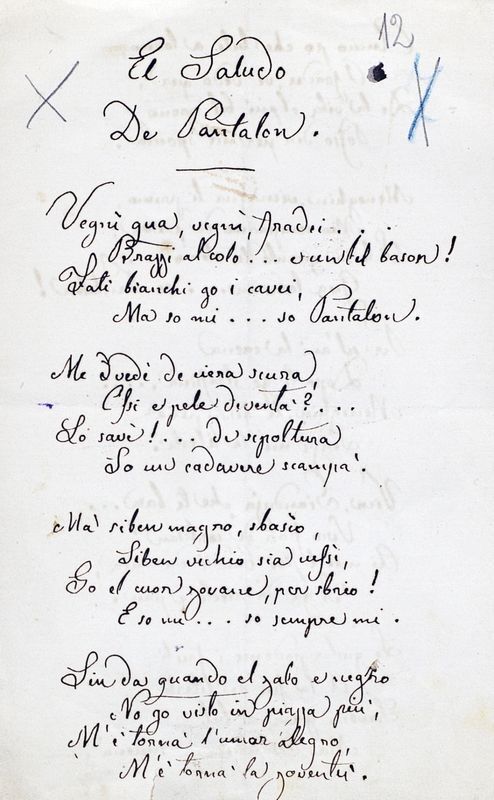 12
El Saludo
De Pantalon.
Vegnì qua, vegnì, fradei . . .
Brazzi al colo . . . e un bel bason!
Fati bianchi go i cavei,
Ma so mi . . . so Pantalon.
Me vedè de ciera scura,
Ossi e pele diventà? . . .
Lo savè! . . . da sepoltura
So un cadavere scampà.
Mà siben magro, sbasìo,
Siben vechio sia cussì,
Go el cuor zovane, per sbrio!
E so mi . . . so sempre mi.
Sin da quando el zalo e negro
No go visto in piazza più,
M'è tornà l'umor alegro,
M'è tornà la zoventù.